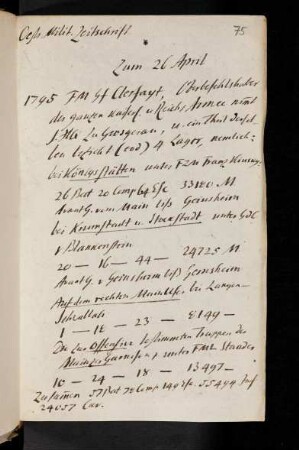 Oest. Milit. Zeitschrift 75
Zum 26 April
1795 FM Gf Clerfayt, Oberbefehlshaber
der ganzen Kaiserl. u Reichs Armee nimt
s. Hq zu Grosgerau, u. ein Theil
ben bezieht (eod) 4 Lager, nemlich
bei Königstätten unter FZM
26 Bat 20 Comp 64 Esc 33180 M
Avant G. vom Main biß Gernsheim
bei u Stockstadt unter Gdc
v Blankenstein
20 — 16 — 44 — 24725 M
Avant G. v Geinsheim biß Gernsheim
Auf dem rechten Mainufer, bei Langen-
1 — 12 — 23 — 8149 —
Die zur Offensive bestimmten Truppen der
Mainzer Garnison, unter FML Staader
10 — 24 — 18 — 13497 —
Zusamen 57 Bat 72 Comp 149 Esc. 55494 Inf
24057 Cav.